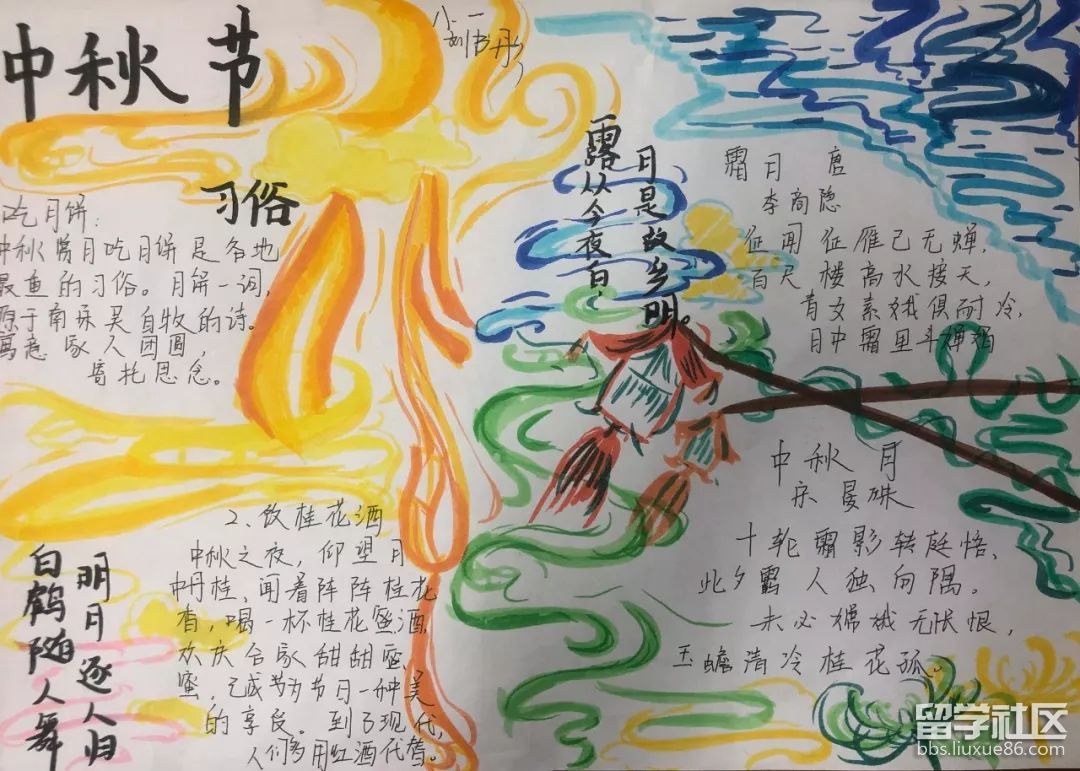 中秋节
小一
刘书彤
习俗
吃月饼：
中秋赏月吃月饼是各地
最重的习俗。月饼一词，
源于南宋吴自牧的诗。
寓意家人团圆，
寄托思念。
露从今夜白，
月是故乡明。
霜月 唐
李商隐
征闻征雁已无蝉，
百尺楼高水接天，
青女素娥俱耐冷，
月中霜里斗婵娟
中秋月
宋 晏殊
十轮霜影转庭梧，
此夕 人独向隅。
未必嫦娥无怅恨，
玉蟾清冷桂花孤。
明月逐人归
白鹤随人舞
2、饮桂花酒
中秋之夜，仰望月
中丹桂，闻着阵阵桂花
香，喝一杯桂花蜜酒，
欢庆合家甜甜蜜
蜜，已成节为节日一种美
的享受。到了现代，
人们多用红酒代替。
留学社区
bbs.liuxue86.com